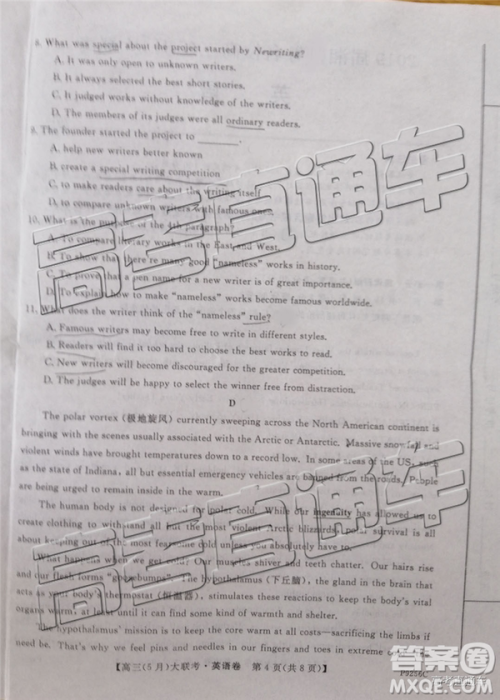 8. What was special about the project started by Newriting?
A. It was only open to unknown writers.
B. It always selected the best short stories.
C. It judged works without knowledge of the writers.
D. The members of its judges were all ordinary readers.
9. The founder started the project to
A. help new writers better known
B. create a special writing competition
C. to make readers care about the writing itself
D. to compare unknown writers with famous ones
10. What is the purpose of the 4th paragraph?
A. To compare literary works in the East and West.
B. To show that there're many good "nameless" works in history.
C. To prove that a pen name for a new writer is of great importance.
D. To explain how to make "nameless" works become famous worldwide.
11. What does the writer think of the "nameless" rule?
A. Famous writers may become free to write in different styles.
B. Readers will find it too hard to choose the best to read.
C. New writers will become discouraged for the greater competition.
D. The judges will be happy to select the winner free from distraction.
D
The polar vortex (极地旋风) currently sweeping across the North American continent is
bringing with the scenes usually associated with the Arctic or Antarctic. Massive snowfall and
violent winds have brought temperatures down to a record low. In some areas of the US, such
as the state of Indiana, all but essential emergency vehicles are banned from the roads. People
are being urged to remain inside in the warm.
The human body is not designed for polar cold. While our ingenuity has allowed us to
create clothing to withstand all but the most violent Arctic blizzards, polar survival is all
about keeping out of the most fearsome cold unless you absolutely have to.
What happens when we get cold? Our muscles shiver and teeth chatter. Our hairs rise
and our flesh forms "goosebumps". The hypothalamus (下丘脑), the gland in the brain that
acts as your body's thermostat (恒温器), stimulates these reactions to keep the body's vital
organs warm, at least until it can find some warmth and shelter.
The hypothalamus' mission is to keep the core warm at all costs—sacrificing the limbs if
need be. That's why we feel pins and needles in our fingers and toes in extreme cold
【高三(5月)大联考·英语卷 第4页(共8页)】
P9256C
高三直通车
高三直通车
答案圈
MXQE.COM